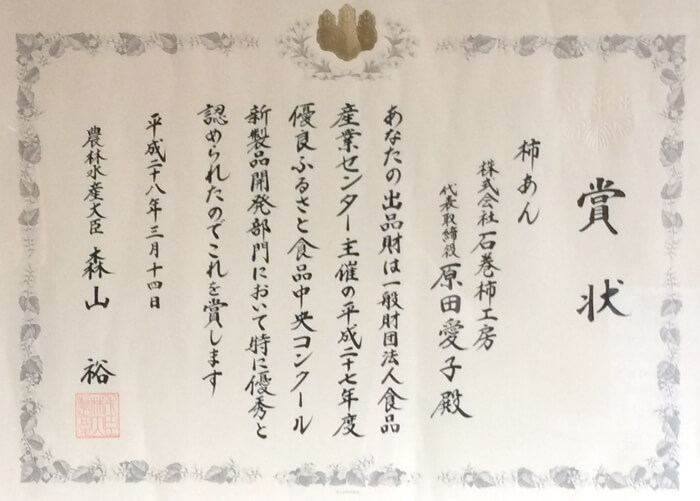 賞状
柿あん
株式会社石巻柿工房
代表取締役 原田愛子殿
あなたの出品財は一般財団法人食品
産業センター主催の平成二十七年度
優良ふるさと食品中央コンクール
新製品開発部門において特に優秀と
認められたのでこれを賞します
平成二十八年三月十四日
農林水産大臣 森山 裕